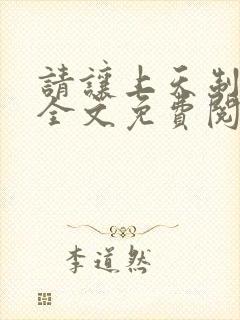 請讓上天制
全文免費閱
李道然